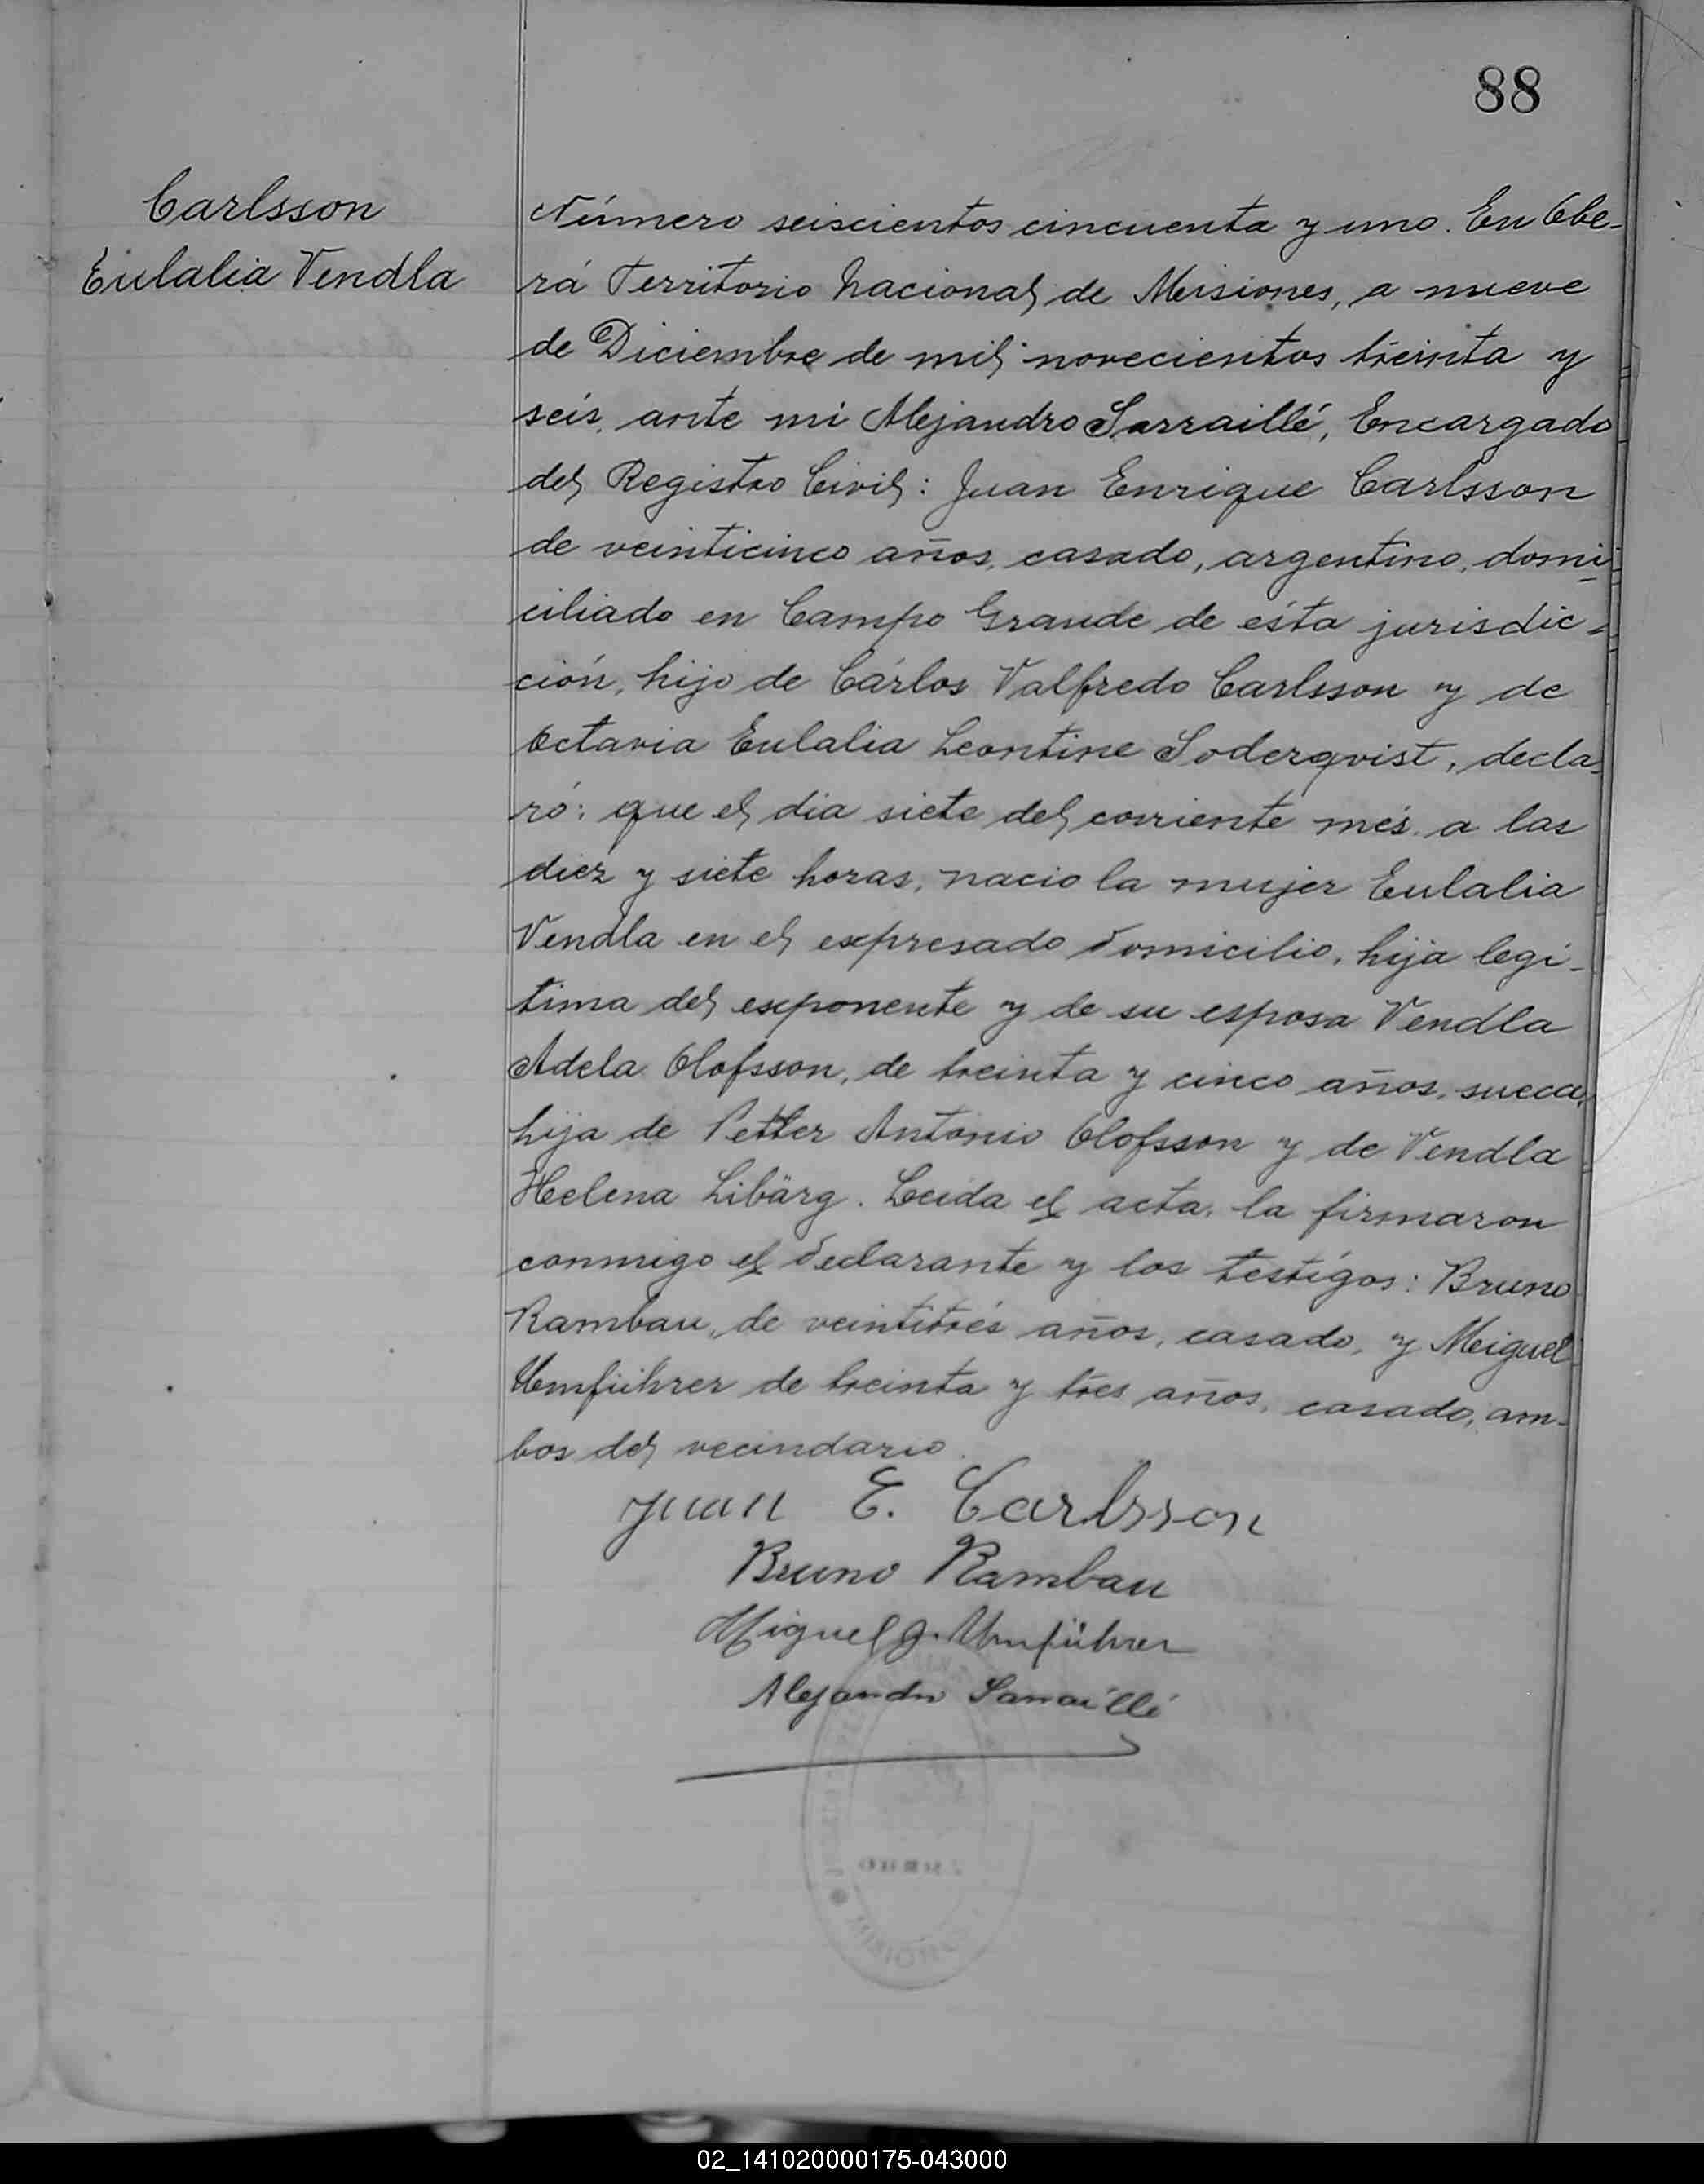 88
Carlsson
Eulalia Vendla
Número seiscientos cincuenta y uno. En Obe-
rá Territorio Nacional de Misiones, a nueve
de Diciembre de mil novecientos treinta y
seis, ante mi Alejandro Sarraillé, Encargado
del Registro Civil: Juan Enrique Carlsson
de veinticinco años, casado, argentino, domi
ciliado en Campo Grande de ésta jurisdic-
ción, hijo de Cárlos Valfredo Carlsson y de
Octavia Eulalia Leontine Soderqvist, decla-
ró: que el dia siete del corriente més a las
diez y siete horas, nacio la mujer Eulalia
Vendla en el expresado domicilio, hija legi-
tima del exponente y de su esposa Vendla
Adela Olofsson, de treinta y cinco años, sueca,
hija de Petter Antonio Olofsson y de Vendla
Helena Libärg. Leida el acta, la firmaron
conmigo el declarante y los testigos: Bruno
Rambau, de veintitrés años, casado, y Miguel
Umführer de treinta y tres años, casado, am-
bos del vecindario.
Juan E. Carlsson
Bruno Rambau
Miguel J. Umführer
Alejandro Sarraillé
02_141020000175-043000